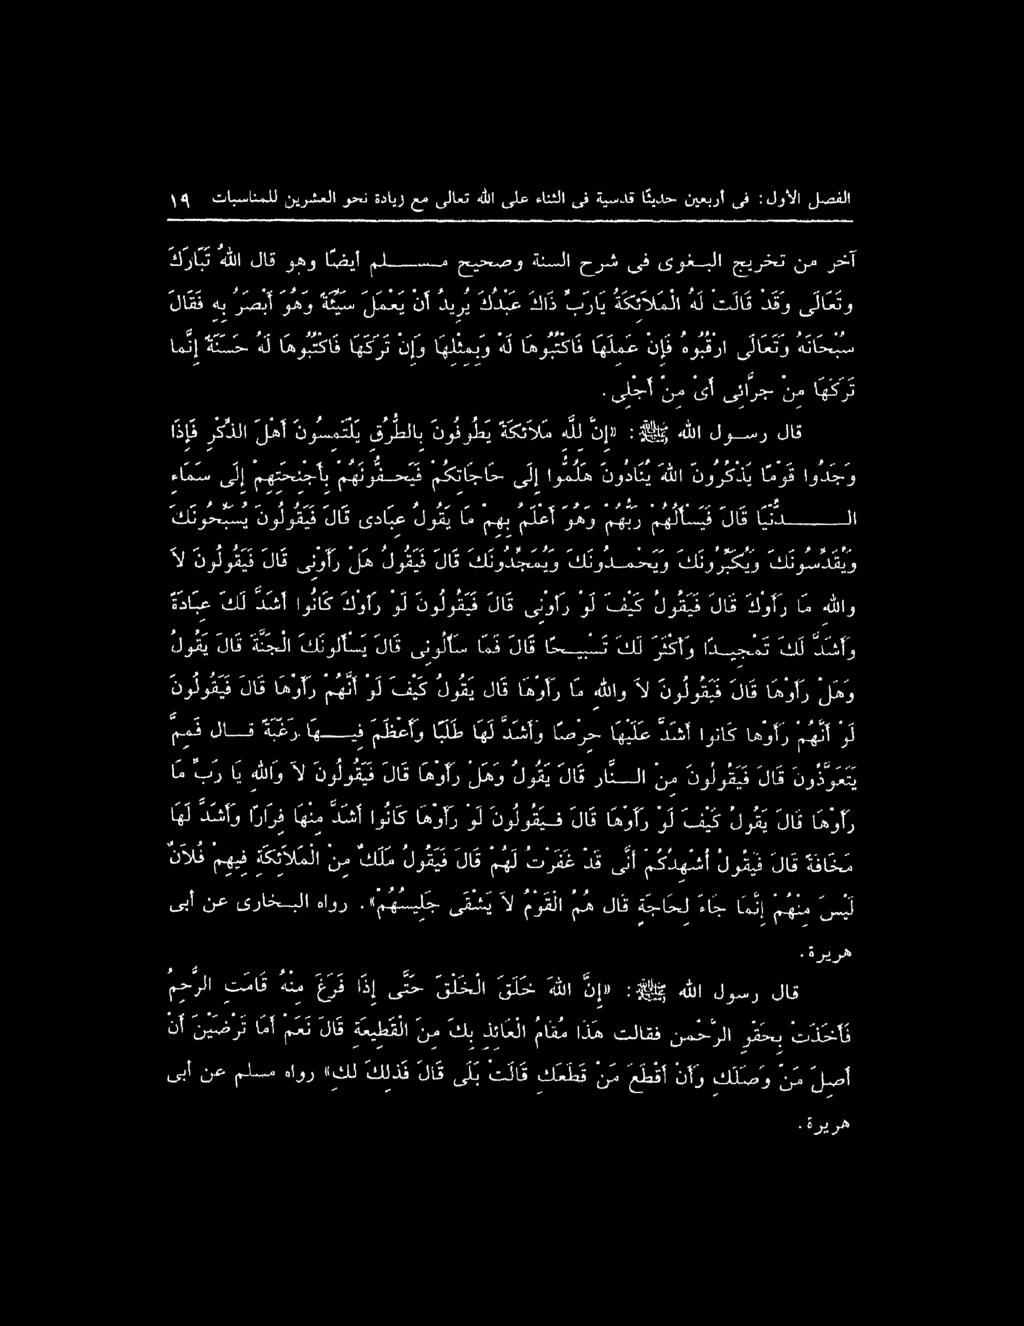 الفصل الأول: فى أربعين حديثًا قدسية فى الثناء على الله تعالى مع زيادة نحو العشرين للمناسبات ١٩
آخر من تخريج البغوى فى شرح السنة وصحيح مسلم أيضًا وهو قال اللهُ تَبَارَكَ
وتَعَالَى وَقَدْ قَالَتْ لَهُ الْمَلاَئكَةُ يَارَبِّ ذَاكَ عَبْدُكَ يُرِيدُ أَنْ يَعْمَلَ سَيِّئَةً وَهُوَ أَبْصَرُ بِهِ فَقَالَ
سُبْحَانَهُ وَتَعَالَى ارْقُبُوهُ فَإِن عَمِلَهَا فَاكْتُبُوهَا لَهُ وَبِمِثْلِهَا وَإِنْ تَرَكَهَا فَاكْتُبُوهَا لَهُ حَسَنَةً إِنَّما
تَرَكَهَا مِنْ جرَّائِى أَىْ مِنْ أَجْلِى.
قال رسول الله ﷺ: «إِنَّ للَّهِ مَلاَئكَةً يَطُوفُونَ بِالطُّرُقِ يَلْتَمِسُونَ أَهْلَ الذِّكْرِ فَإِذَا
وَجَدُوا قَوْمًا يَذْكُرُونَ اللهَ يُنَادُونَ هَلُمُّوا إِلَى حَاجَاتِكُمْ فَيَحفُّونَهُمْ بِأَجْنِحَتِهِمْ إِلَى سَمَاءِ
الدُّنْيَا قَالَ فَيَسْأَلُهُمْ رَبُّهُمْ وَهُوَ أَعْلَمُ بِهِمْ مَا يَقُولُ عِبَادِى قَالَ فَيَقُولُونَ يُسَبِّحُونَكَ
وَيُقَدِّسُونَكَ وَيُكَبِّرُونَكَ وَيَحْمدُونَكَ وَيُمَجِّدُونَكَ قَالَ فَيَقُولُ هَلْ رَأَوْنِى قَالَ فَيَقُولُونَ لاَ
واللهِ مَا رَأَوْكَ قَالَ فَيَقُولُ كَيْفَ لَوْ رَأَوْنِى قَالَ فَيَقُولُونَ لَوْ رَأَوْكَ كَانُوا أَشَدَّ لَكَ عِبَادَةً
وَأَشَدَّ لَكَ تَمْجِيدًا وَأَكْثَرَ لَكَ تَسْبِيحًا قَالَ فَمَا سَأَلُونِى قَالَ يَسْأَلُونَكَ الْجَنَّةَ قَالَ يَقُولُ
وَهَلْ رَأَوْهَا قَالَ فَيَقُولُونَ لاَ واللهِ مَا رَأَوْهَا قال يَقُولُ كَيْفَ لَوْ أَنَّهُمْ رَأَوْهَا قَالَ فَيَقُولُونَ
لَوْ أَنَّهُمْ رَأَوْهَا كَانوا أَشَدَّ عَلَيْهَا حِرْصًا وَأَشَدَّ لَهَا طَلَبًا وَأَعْظَمَ فِيهَا رَغْبَةً قال فَمِمَّ
يَتَعَوَّذُونَ قَالَ فَيَقُولُونَ مِنَ النَّارِ قَالَ يَقُولُ وَهَلْ رَأَوْهَا قَالَ فَيَقُولُونَ لاَ وَاللهِ يَا رَبِّ مَا
رَأَوْهَا قَالَ يَقُولُ كَيْفَ لَوْ رَأَوْهَا قَالَ فَيَقُولُونَ لَوْ رَأَوْهَا كَانُوا أَشَدَّ مِنْهَا فِرَارًا وَأَشَدَّ لَهَا
مَخَافَةً قَالَ فَيَقُولُ أُشْهِدُكُمْ أَنِّى قَدْ غَفَرْتُ لَهُمْ قَالَ فَيَقُولُ مَلَكٌ مِنَ الْمَلاَئِكَةِ فِيهِمْ فُلاَنٌ
لَيْسَ مِنْهُمْ إِنَّمَا جَاءَ لِحَاجَةٍ قَال هُمُ الْقَوْمُ لاَ يَشْقَى جَلِيسُهُمْ». رواه البخارى عن أبى
هريرة.
قال رسول الله ﷺ: «إِنَّ اللهَ خَلَقَ الْخَلْقَ حَتَّى إِذَا فَرَغَ مِنْهُ قَامَتِ الرَّحِمُ
فَأَخَذَتْ بِحَقْوِ الرَّحْمنِ فقالت هَذَا مُقَامُ الْعَائِذِ بِكَ مِنَ الْقَطِيعَةِ قَالَ نَعَمْ أَمَا تَرْضَيْنَ أَنْ
أَصِلَ مَنْ وَصَلَكِ وَأَنْ أَقْطَعَ مَنْ قَطَعَكِ قَالَتْ بَلَى قَالَ فَذلِكَ لَكِ» رواه مسلم عن أبى
هريرة.